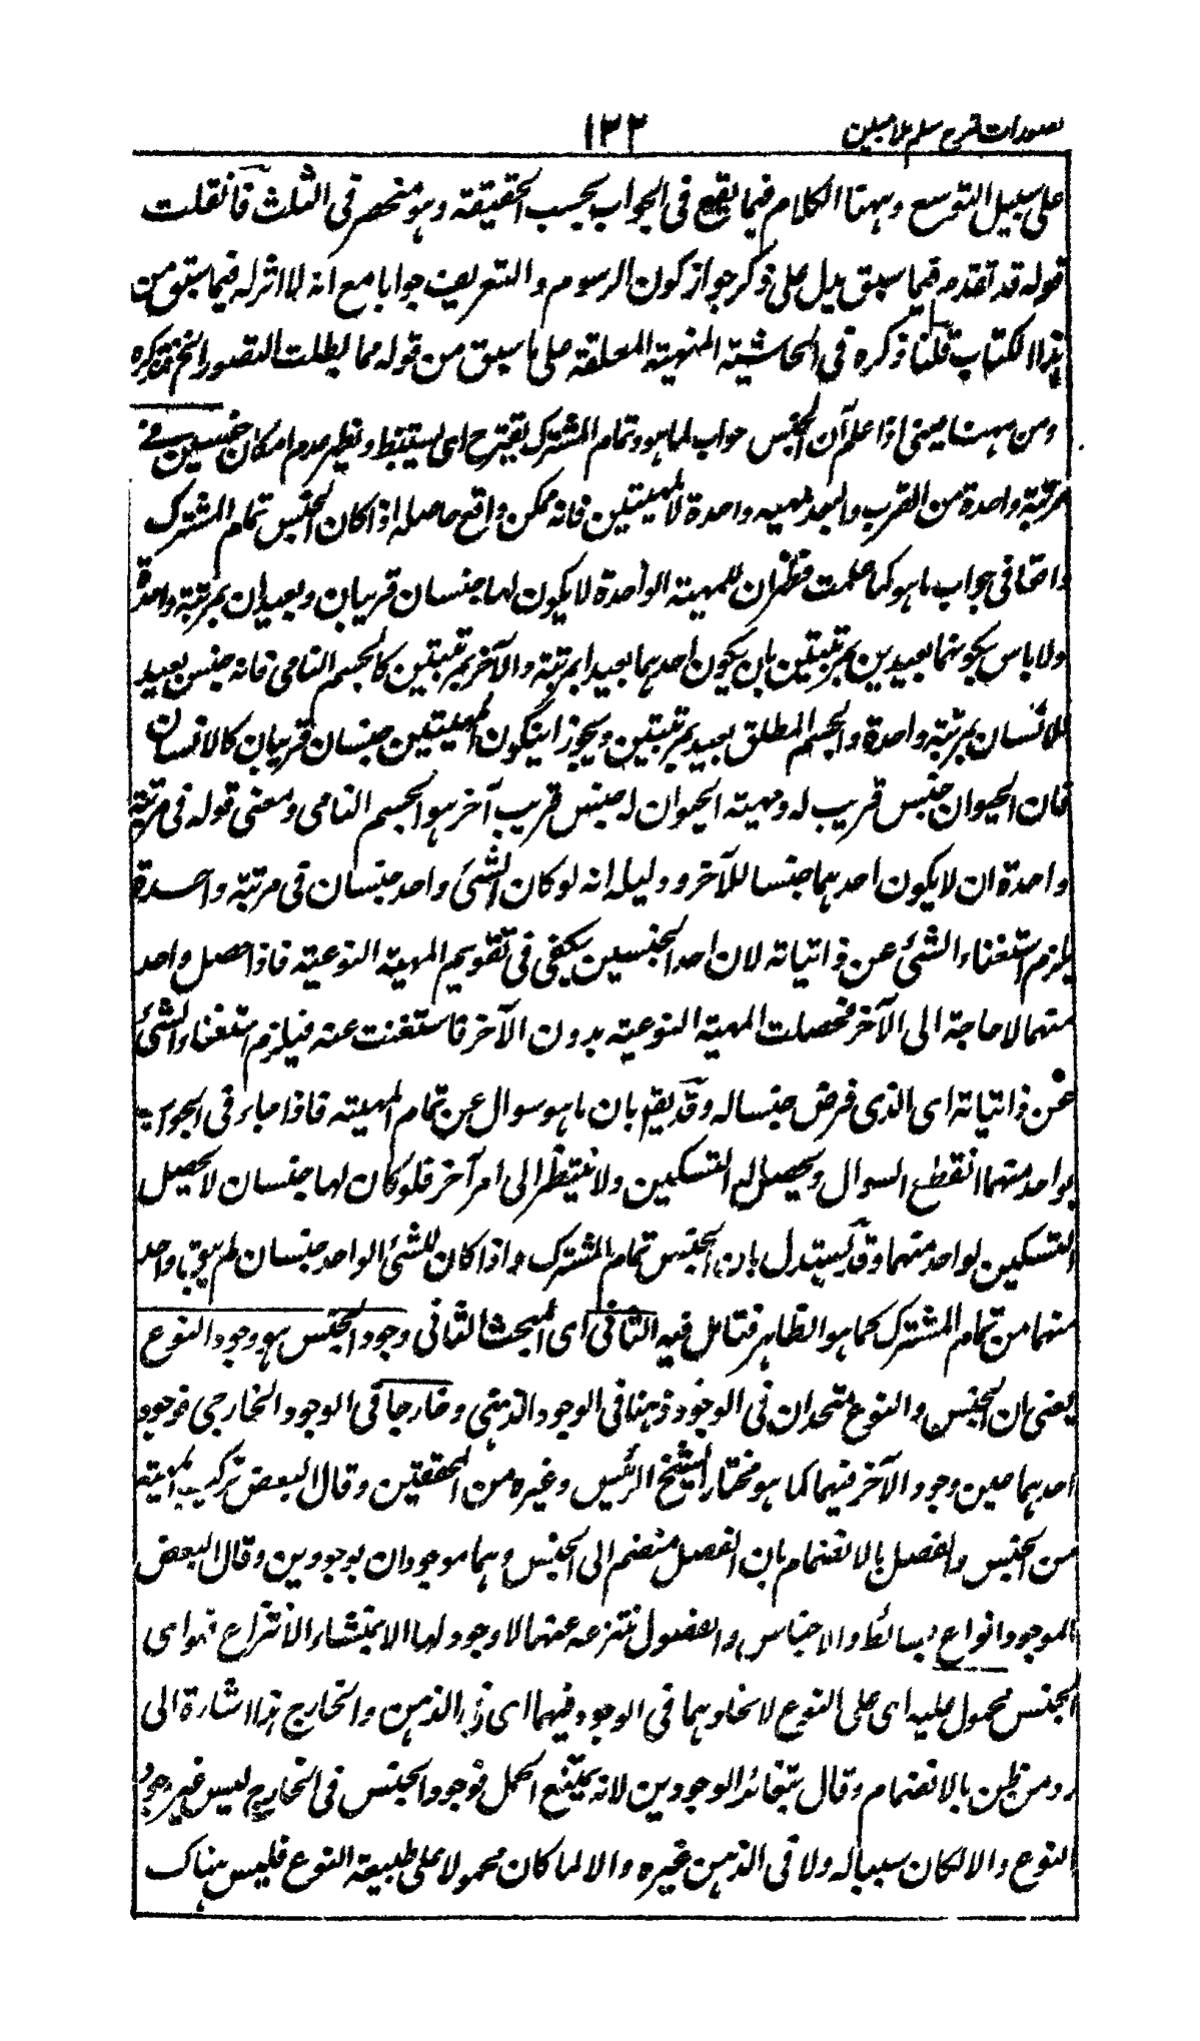 تصورات شرح سلم ملا مبين
١٣٣
على سبيل التوسع وههنا الكلام فيما يقع فى الجواب بحسب الحقيقة وهو منحصر فى الثلث فان قلت
قوله قد تقدمه فيما سبق يدل على ذكر جواز كون الرسوم والتعريف جوابا مع انه لا اثر له فيما سبق من
هذا الكتاب قلنا ذكره فى الحاشية المنهية المعلقة على ما سبق من قوله مما بطلت التصور الخ فتذكره
ومن ههنا يعنى اذا علم أن الجنس جواب لما هو وتمام المشترك يقترح اى يستنبط ويظهر عدم امكان جنسين فى
مرتبة واحدة من القرب والبعد لمهية واحدة لا لمهيتين فانه ممكن واقع حاصله اذا كان الجنس تمام المشترك
واقعا فى جواب ما هو كما علمت فظهر ان للمهية الواحدة لا يكون لها جنسان قريبان وبعيدان بمرتبة واحدة
ولا باس بكونهما بعيدين بمرتبتين بان يكون احدهما بعيدا بمرتبة والآخر بمرتبتين كالجسم النامى فانه جنس بعيد
للانسان بمرتبة واحدة والجسم المطلق بعيد بمرتبتين ويجوز ان يكون لمهيتين جنسان قريبان كالانسان
فان الحيوان جنس قريب له ومهية الحيوان له جنس قريب آخر هو الجسم النامى ومعنى قوله فى مرتبة
واحدة ان لا يكون احدهما جنسا للآخر ودليله انه لو كان لشئ واحد جنسان فى مرتبة واحدة
يلزم استغناء الشئ عن ذاتياته لان احد الجنسين يكفى فى تقويم المهية النوعية فاذا حصل واحد
منهما لا حاجة الى الآخر فحصلت المهية النوعية بدون الآخر فاستغنت عنه فيلزم استغناء الشئ
عن ذاتياته اى الذى فرض جنسا له وقد يقوم بان ما هو سوال عن تمام المهية فاذا جاء فى الجواب
بواحد منهما انقطع السوال ويحصل له التسكين ولا ينتظر الى امر آخر فلو كان لها جنسان لا يحصل
التسكين لواحد منهما وقد يستدل بان الجنس تمام المشترك واذا كان للشئ الواحد جنسان لم يبق واحد
منهما من تمام المشترك كما هو الظاهر فتامل فيه الثانى اى المبحث الثانى وجود الجنس هو وجود النوع
يعنى ان الجنس والنوع متحدان فى الوجود ذهنا فى الوجود الذهنى وخارجا فى الوجود الخارجى فوجود
احدهما عين وجود الآخر فيهما كما هو مختار الشيخ الرئيس وغيره من المحققين وقال البعض تركيب المهية
من الجنس والفصل بالانضمام بان الفصل منضم الى الجنس وهما موجودان بوجودين وقال البعض
الموجود انواع بسائط والاجناس والفصول منتزعه عنها لا وجود لها الا بمنشاء الانتزاع فهو اى
الجنس محمول عليه اى على النوع لاتحادهما فى الوجود فيهما اى فى الذهن والخارج هذا اشارة الى
رد من ظن بالانضمام وقال بتغائر الوجودين لانه يمتنع الحمل فوجود الجنس فى الخارج ليس غير وجود
النوع والا لكان سببا له ولا فى الذهن غيره والا لما كان محمولا على طبيعة النوع فليس هناك